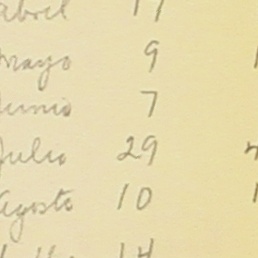 abril 17
mayo 9
junio 7
Julio 29
Agosto 10
14